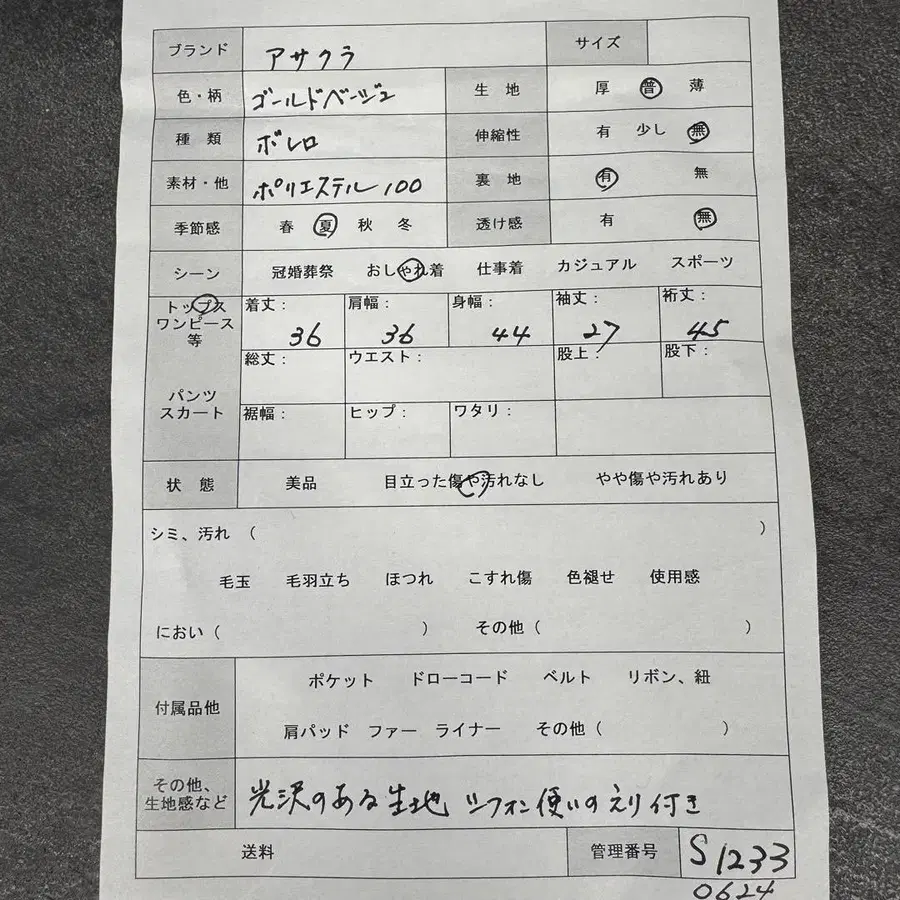 ブランド アサクラ サイズ
色・柄 ゴールドベージュ 生 地 厚 普 薄
種 類 ボレロ 伸縮性 有 少し 無
素材・他 ポリエステル 100 裏 地 有 無
季節感 春 夏 秋 冬 透け感 有 無
シーン 冠婚葬祭 おしゃれ着 仕事着 カジュアル スポーツ
トップス
ワンピース
等
着丈: 肩幅: 身幅: 袖丈: 裄丈:
36 36 44 27 45
総丈: ウエスト: 股上: 股下:
パンツ
スカート
裾幅: ヒップ: ワタリ:
状 態 美品 目立った傷や汚れなし やや傷や汚れあり
シミ、汚れ ( )
毛玉 毛羽立ち ほつれ こすれ傷 色褪せ 使用感
におい ( ) その他 ( )
付属品他 ポケット ドローコード ベルト リボン、紐
肩パッド ファー ライナー その他 ( )
その他、
生地感など
光沢のある生地 シフォン使いのえり付き
送料 管理番号 S1233
0624